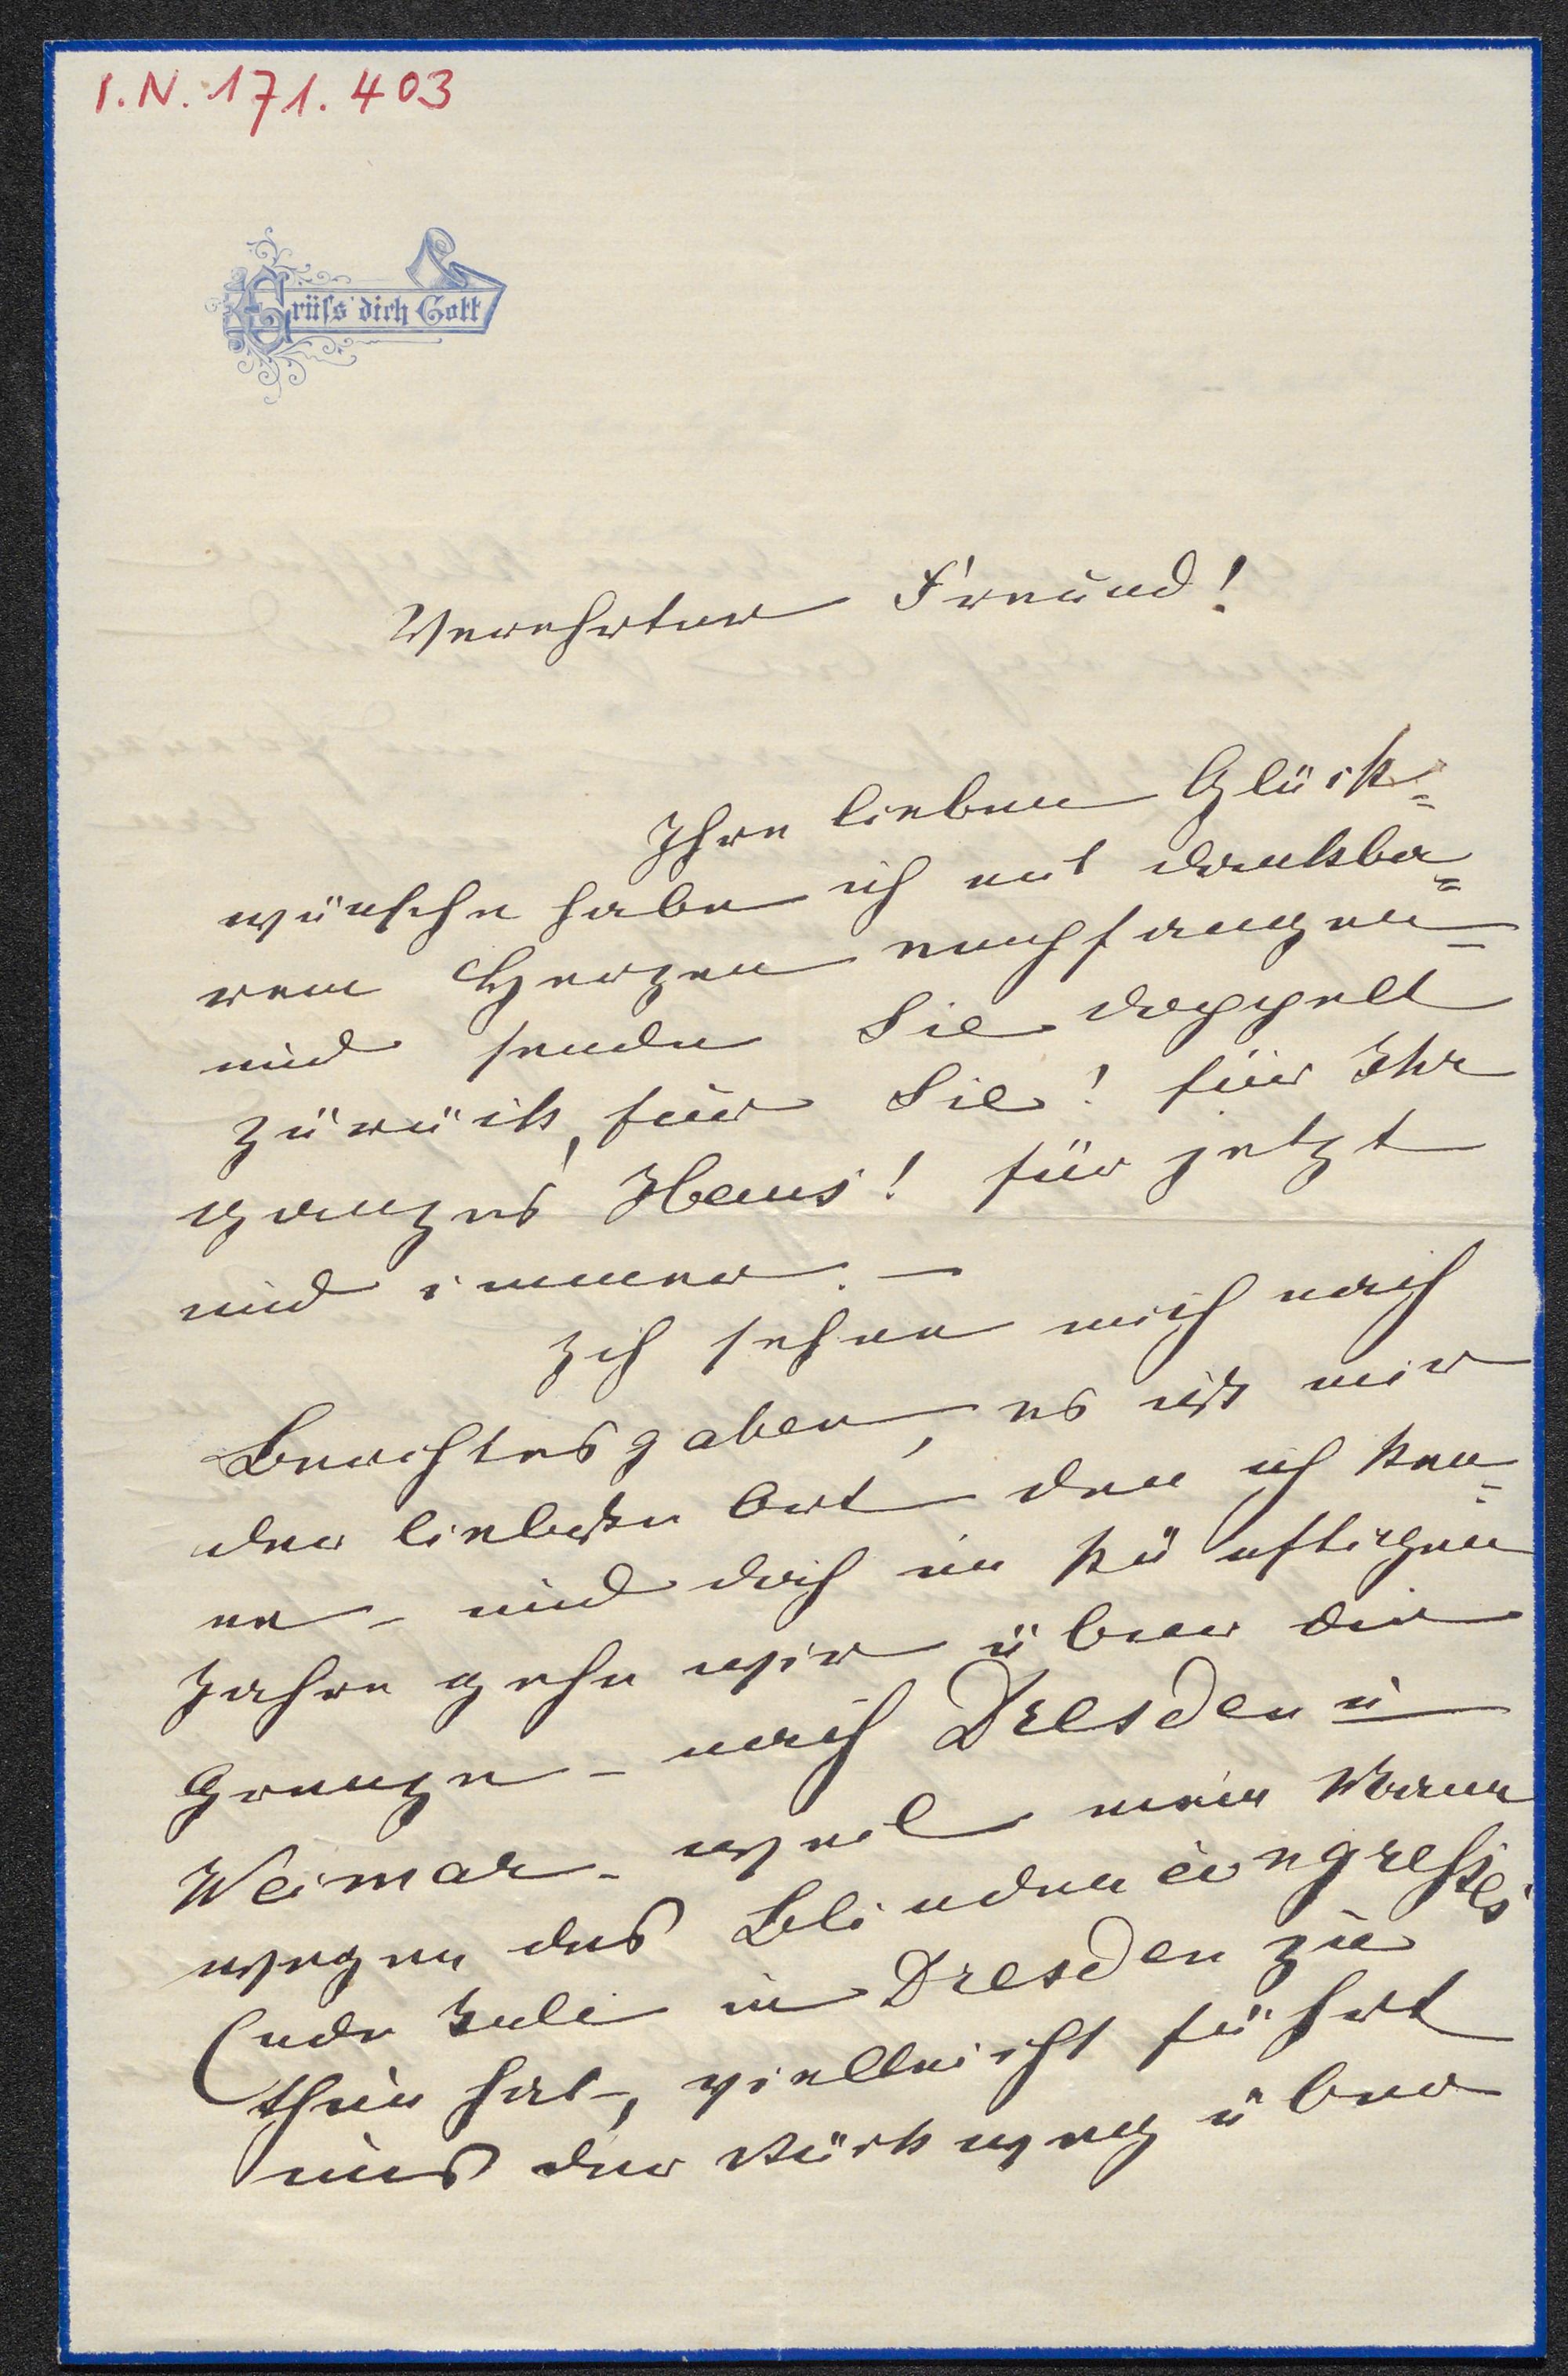 I.N. 171.403
Grüss' dich Gott
Verehrter Freund!
Ihre lieben Glück-
wünsche habe ich mit dankba-
rem Herzen empfangen -
und sende Sie doppelt
zurück, für Sie! für Ihr
ganzes Haus! für jetzt
und immer. -
Ich sehne mich nach
Berchtesgaden, es ist mir
der liebste Ort den ich ken-
ne - und doch im künftigen
Jahre gehn wir über die
Grenze - nach Dresden u
Weimar - weil mein Mann
wegen des Blindencongresses
Ende Juli in Dresden zu
thun hat, vielleicht führt
uns der Rückweg über